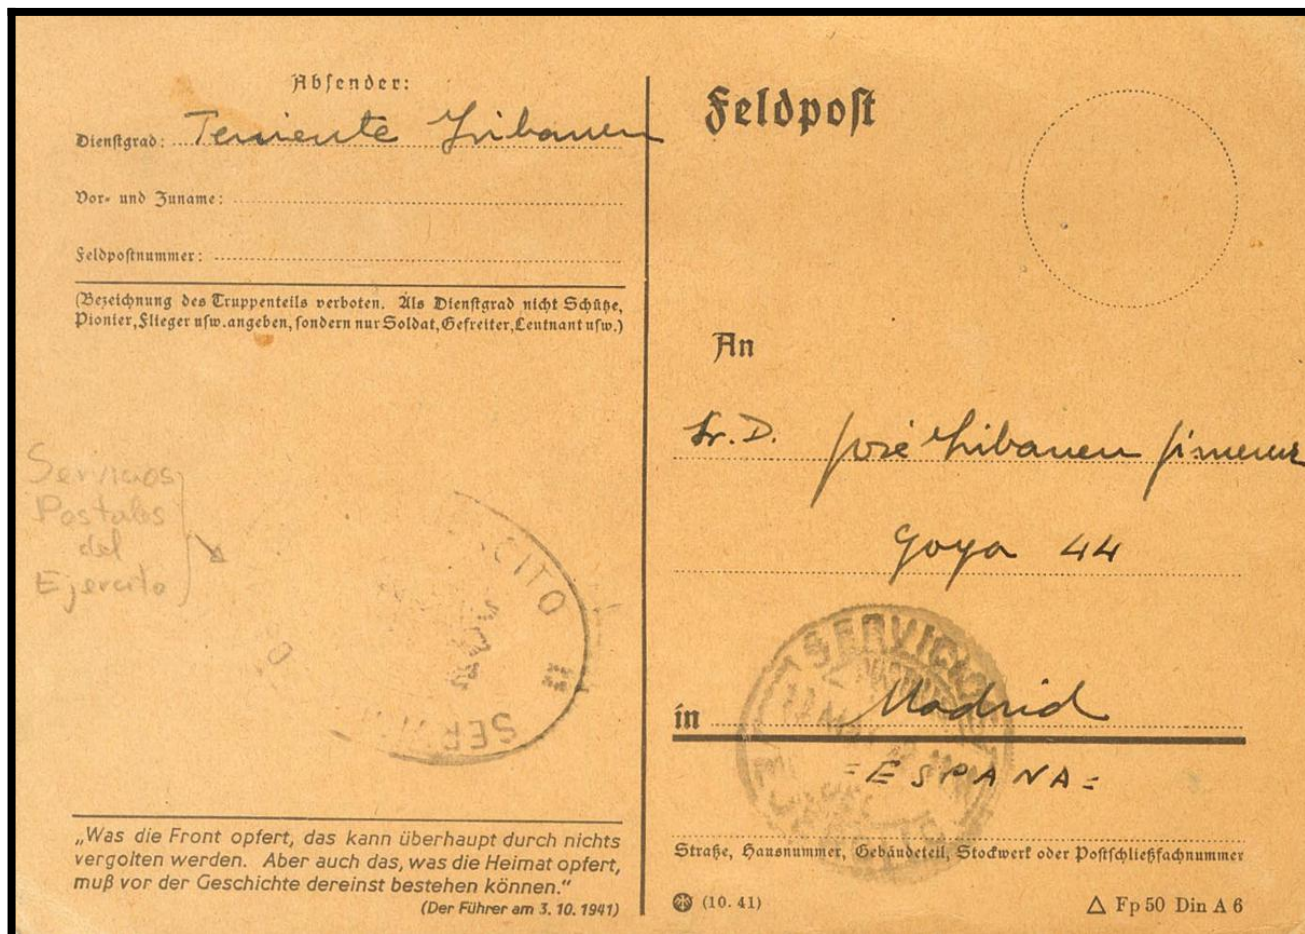 Absender:
Dienstgrad: Teniente
Vor- und Zuname:
Feldpostnummer:
(Bezeichnung des Truppenteils verboten. Als Dienstgrad nicht Schütze,
Pionier, Flieger usw. angeben, sondern nur Soldat, Gefreiter, Leutnant usw.)
Servicios
Postales
del
Ejercito
CITO
SER
„Was die Front opfert, das kann überhaupt durch nichts
vergolten werden. Aber auch das, was die Heimat opfert,
muß vor der Geschichte dereinst bestehen können.“
(Der Führer am 3. 10. 1941)
Feldpost
An
Sr. D. José
Goya 44
in Madrid
=ESPAÑA=
SERVICIO
Straße, Hausnummer, Gebäudeteil, Stockwerk oder Postschließfachnummer
(10. 41)
△ Fp 50 Din A 6